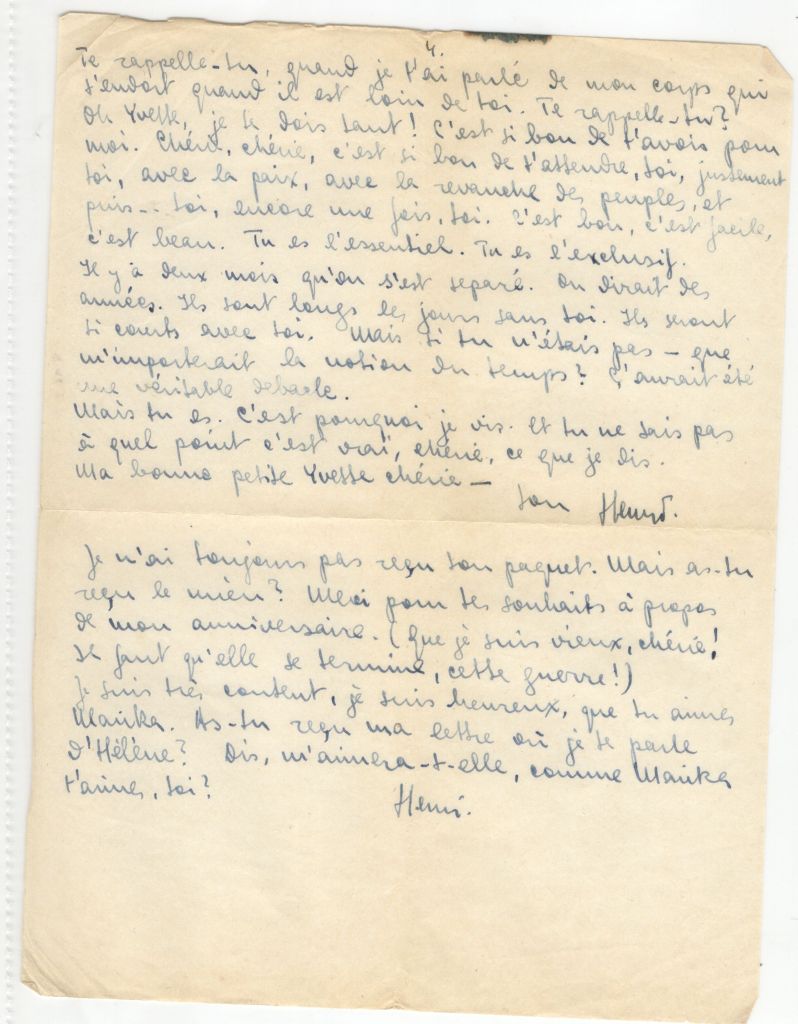 4.
Te rappelle-tu, quand je t'ai parlé de mon corps qui
s'endort quand il est loin de toi. Te rappelle-tu?
Oh Yvette, je te dois tant! C'est si bon de t'avoir pour
moi. Chérie, chérie, c'est si bon de t'attendre, toi, justement
toi, avec la paix, avec la revanche des peuples, et
puis... toi, encore une fois, toi. C'est bon, c'est facile,
c'est beau. Tu es l'essentiel. Tu es l'exclusif.
Il y à deux mois qu'on s'est separé. On dirait des
années. Ils sont longs les jours sans toi. Ils seront
si courts avec toi. Mais si tu n'étais pas – que
m'importerait la notion du temps? Ç'aurait été
une véritable debacle.
Mais tu es. C'est pourquoi je vis. Et tu ne sais pas
à quel point c'est vrai, chérie, ce que je dis.
Ma bonne petite Yvette chérie –
ton Henri.
Je n'ai toujours pas reçu ton paquet. Mais as-tu
reçu le mien? Merci pour tes souhaits à propos
de mon anniversaire. (Que je suis vieux, chérie!
Il faut qu'elle se termine, cette guerre!)
Je suis très content, je suis heureux, que tu aimes
Marika. As-tu reçu ma lettre où je te parle
d'Hélène? Dis, m'aimera-t-elle, comme Marika
t'aime, toi?
Henri.